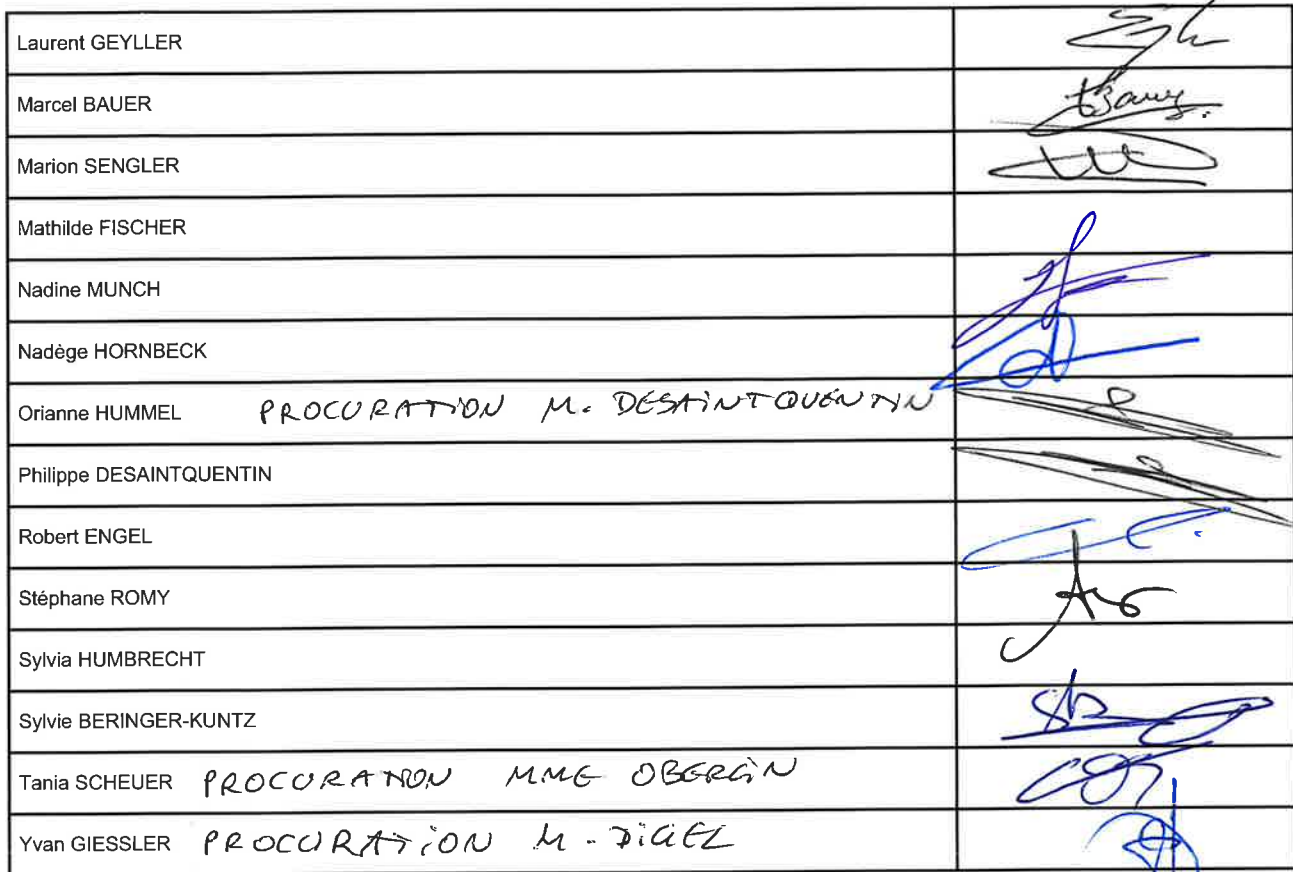 Laurent GEYLLER
Marcel BAUER
Marion SENGLER
Mathilde FISCHER
Nadine MUNCH
Nadège HORNBECK
Orianne HUMMEL PROCURATION M. DESAINTQUENTIN
Philippe DESAINTQUENTIN
Robert ENGEL
Stéphane ROMY
Sylvia HUMBRECHT
Sylvie BERINGER-KUNTZ
Tania SCHEUER PROCURATION MME OBERLIN
Yvan GIESSLER PROCURATION M. DIGEL